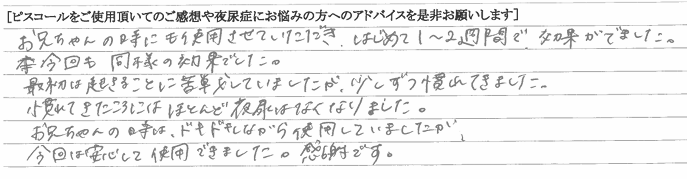 [ピスコールをご使用頂いてのご感想や夜尿症にお悩みの方へのアドバイスを是非お願いします]
お兄ちゃんの時にも使用させていただき、はじめて1~2週間で、効果がでました。
今回も同様の効果でした。
最初は起きることに苦労していましたが、少しずつ慣れてきました。
慣れてきたころにはほとんど夜尿はなくなりました。
お兄ちゃんの時は、ドキドキしながら使用していましたが、
今回は安心して使用できました。感謝です。